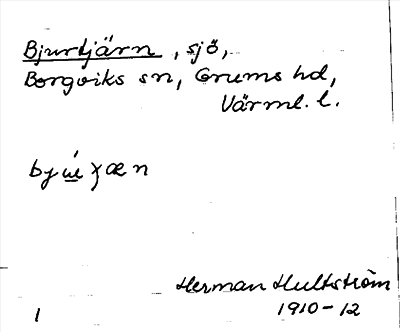 Bjurtjärn, sjö,
Borgviks sn, Grums hd,
Värml. l.
Herman Hultström
1910-12
1